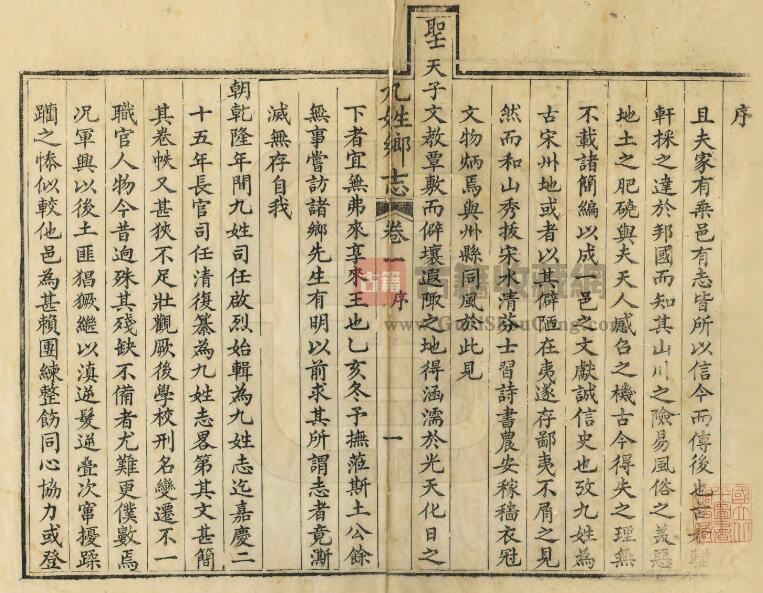 序
且夫家有乘邑有志皆所以信今而傳後也
軒採之達於邦國而知其山川之險易風俗之美惡
地土之肥磽與夫天人感召之機古今得失之理無
不載諸簡編以成一邑之文獻誠信史也攷九姓為
古宋州地或者以其僻陋在夷遂存鄙夷不屑之見
然而和山秀拔宋水清芬士習詩書農安稼穡衣冠
文物炳焉與州縣同風於此見
聖天子文教覃敷而僻壤遐陬之地得涵濡於光天化日之
九姓鄉志 卷一 序 一
下者宜無弗來享來王也乙亥冬予撫蒞斯土公餘
無事嘗訪諸鄉先生有明以前求其所謂志者竟澌
滅無存自我
朝乾隆年間九姓司任啟烈始輯為九姓志迄嘉慶二
十五年長官司任清復纂為九姓志畧第其文甚簡
其卷帙又甚狹不足壯觀厥後學校刑名變遷不一
職官人物今昔迥殊其殘缺不備者尤難更僕數焉
况軍興以後土匪猖獗繼以滇逆髮逆疊次竄擾蹂
躪之慘似較他邑為甚賴團練整飭同心協力或登
古籍
古籍收藏網
www.GuJiShouCang.com